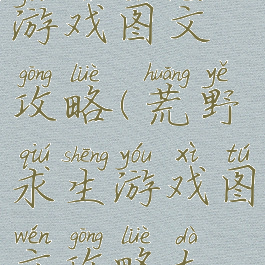 游戏图文
gōng lüè huāng yě
攻略(荒野
qiú shēng yóu xì tú
求生游戏图
wén gōng lüè dà
文攻略大